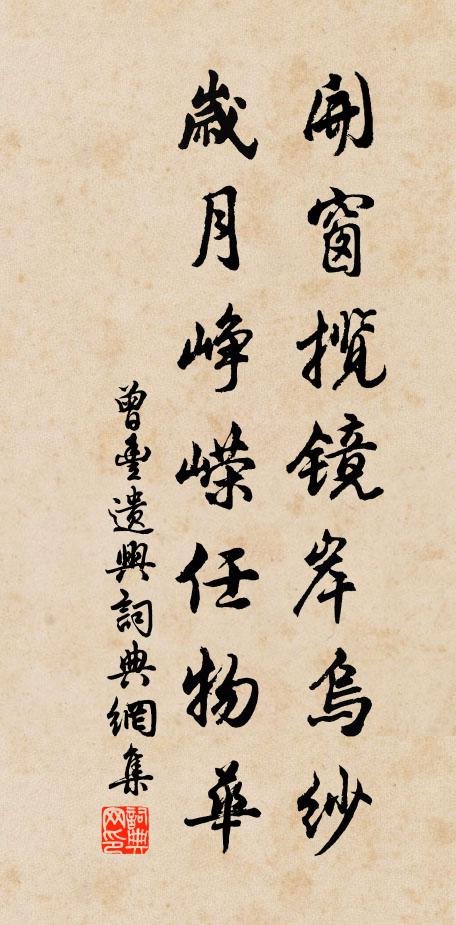 開窗攬镜岸烏紗
歲月峥嶸任物華
曾豐遣興詞典網集
詞典網印